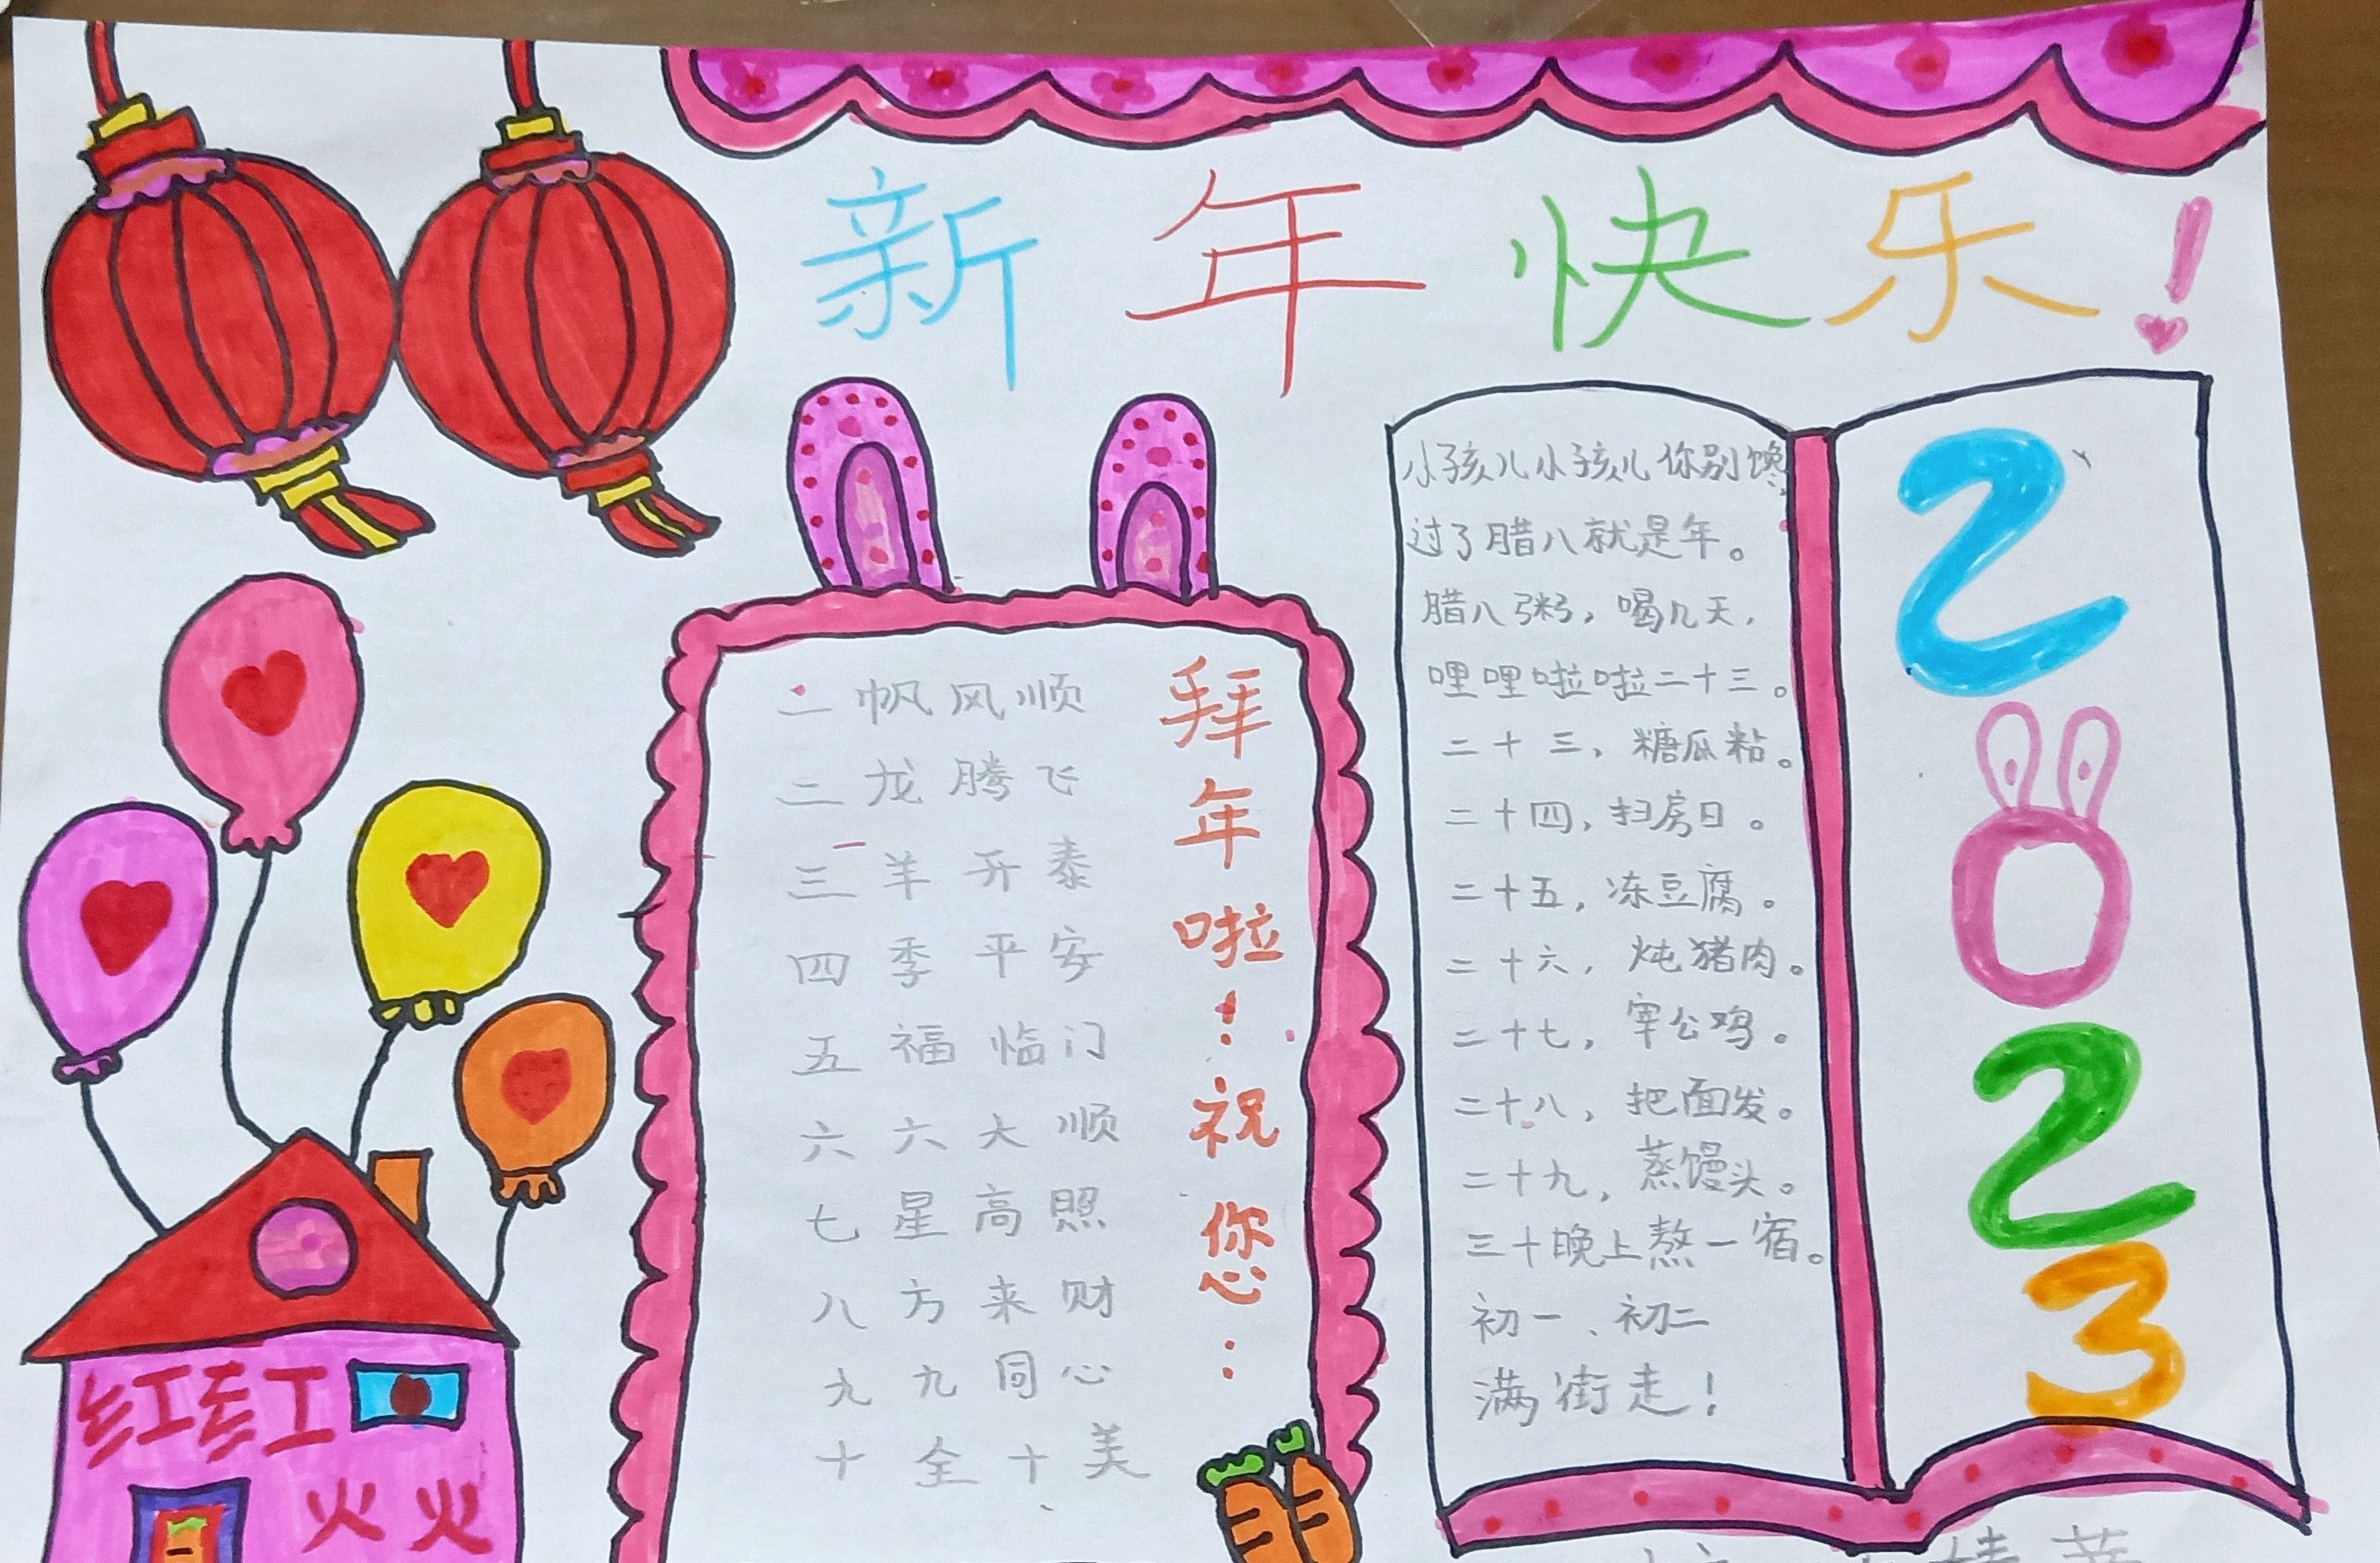 新年快乐！
拜年啦！祝您：
一帆风顺
二龙腾飞
三羊开泰
四季平安
五福临门
六六大顺
七星高照
八方来财
九九同心
十全十美
小孩儿小孩儿你别馋，
过了腊八就是年。
腊八粥，喝几天，
哩哩啦啦二十三。
二十三，糖瓜粘。
二十四，扫房日。
二十五，冻豆腐。
二十六，炖猪肉。
二十七，宰公鸡。
二十八，把面发。
二十九，蒸馒头。
三十晚上熬一宿。
初一、初二
满街走！
2023
红红
火火